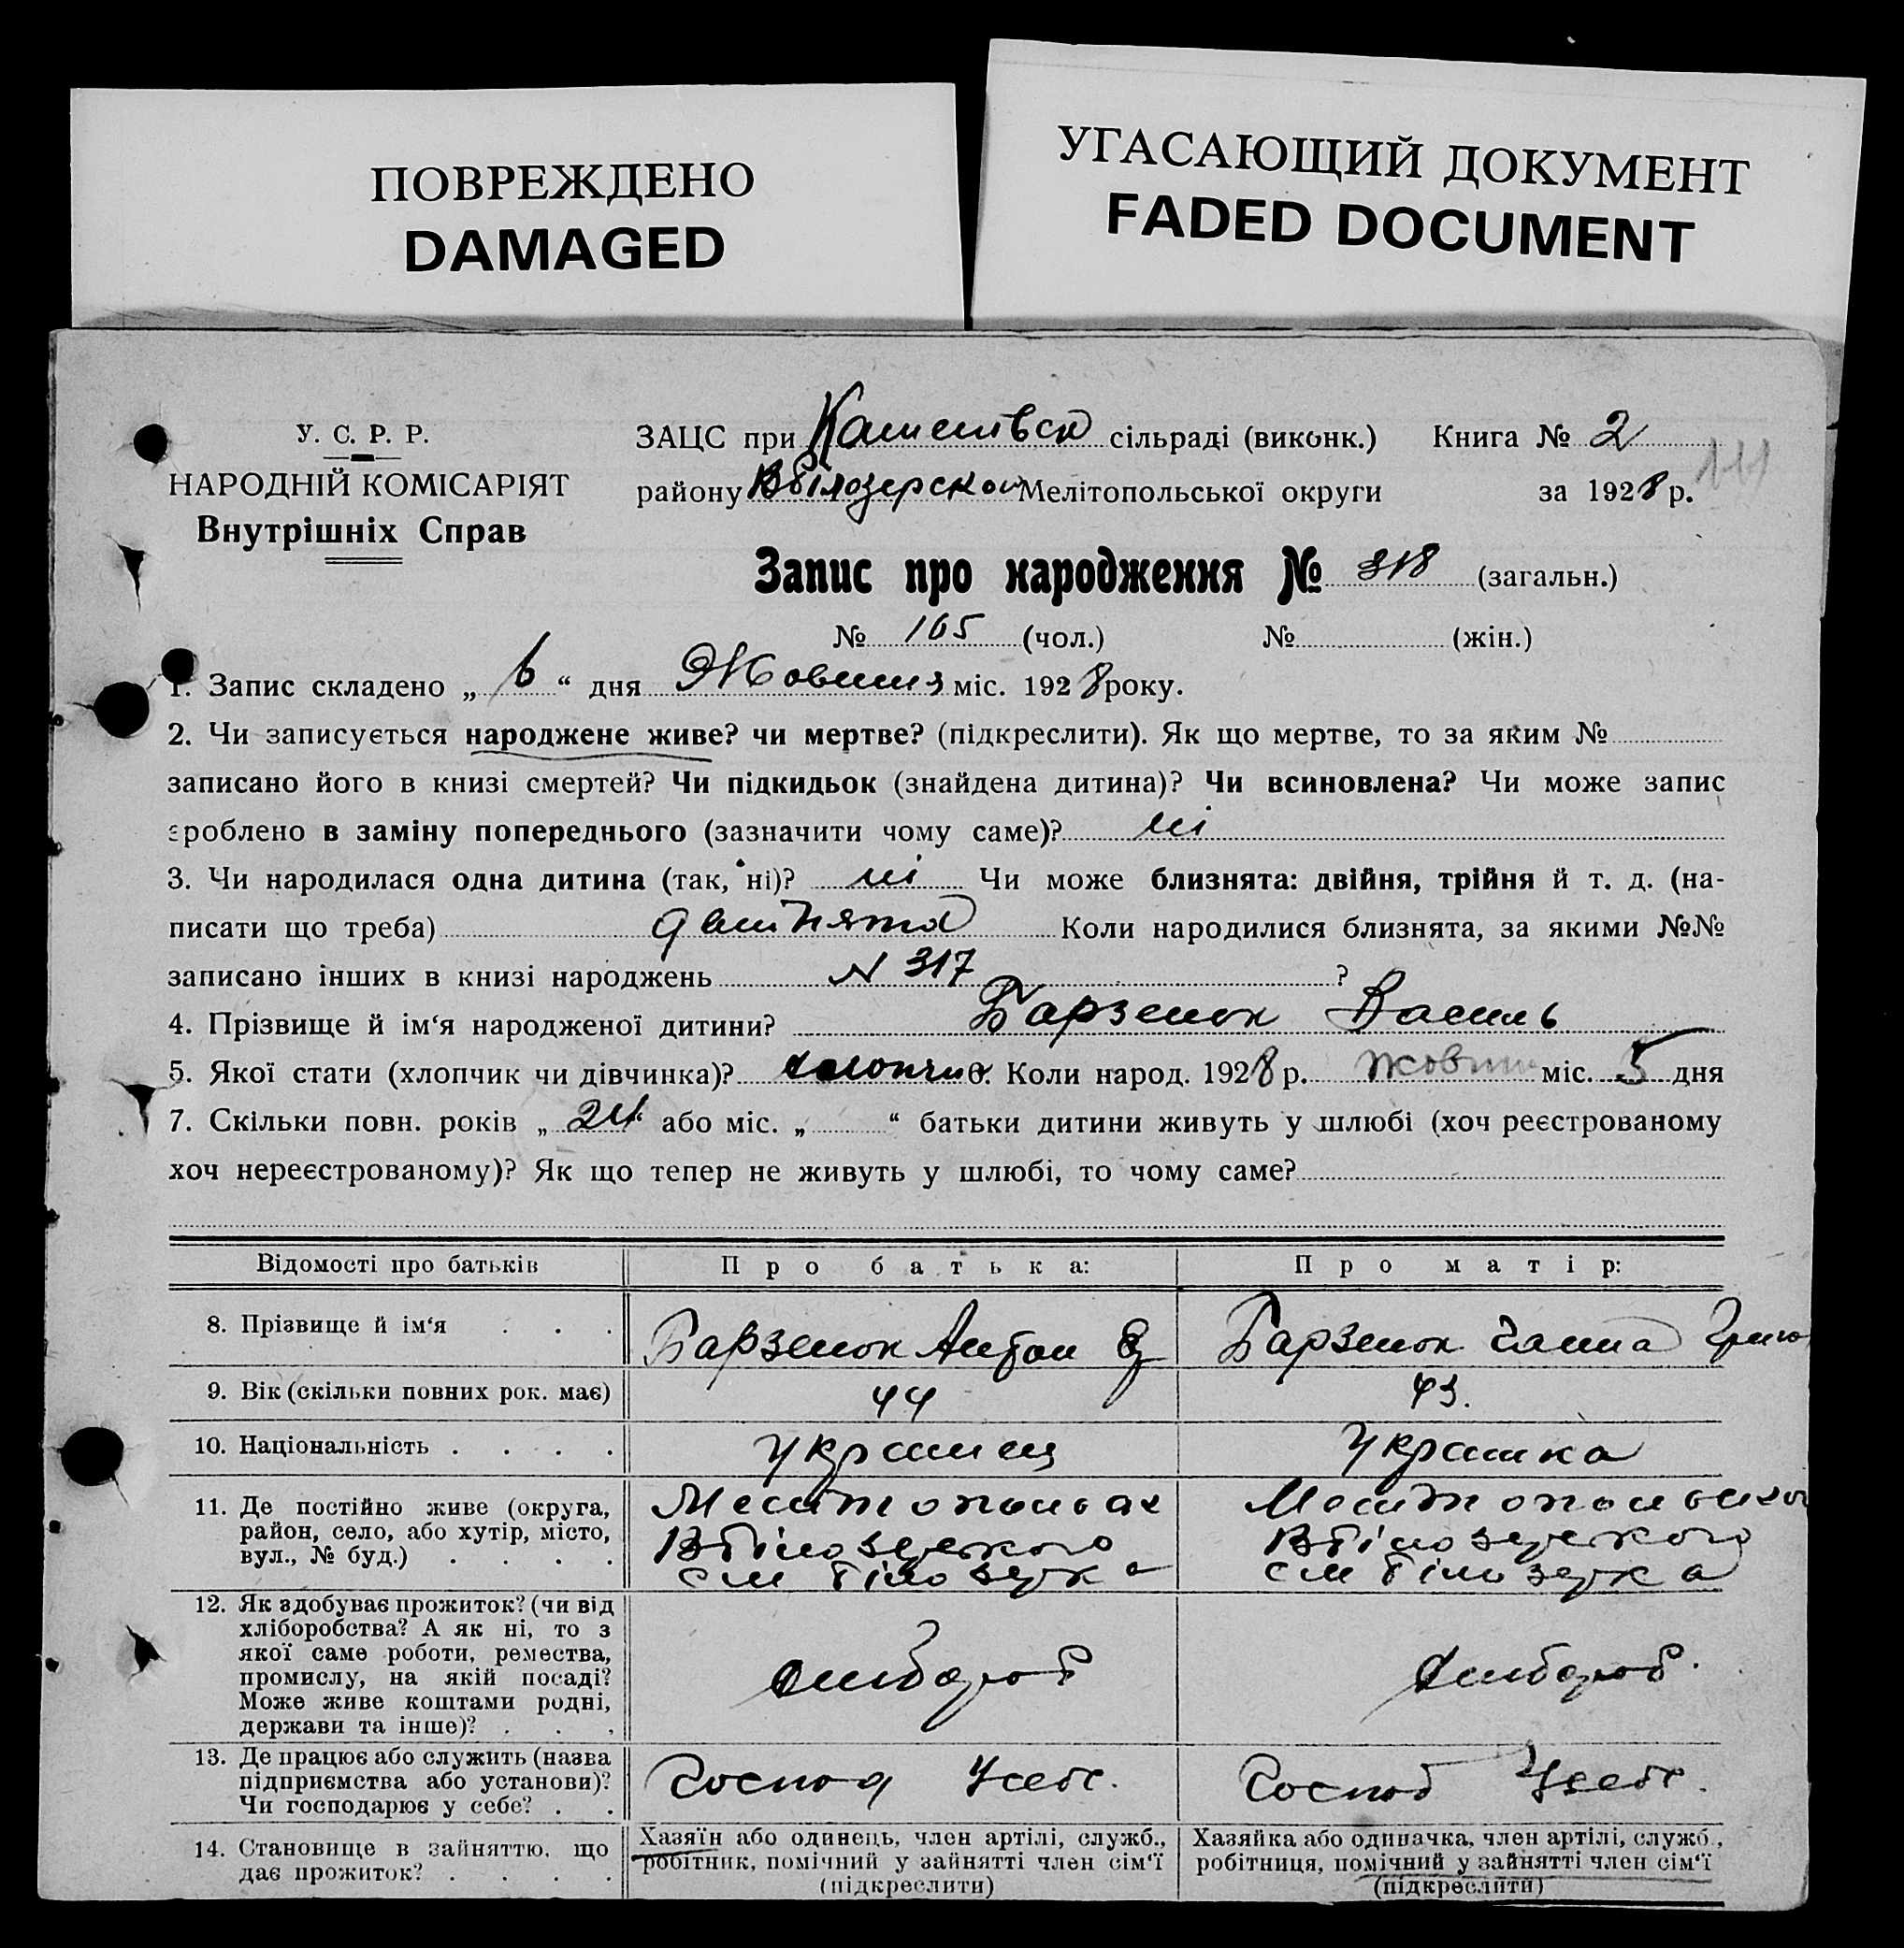 ПОВРЕЖДЕНО
DAMAGED
УГАСАЮЩИЙ ДОКУМЕНТ
FADED DOCUMENT
У. С. Р. Р.
НАРОДНІЙ КОМІСАРІЯТ
Внутрішніх Справ
ЗАЦС при сільраді (виконк.) Книга № 2
району Вбілозерског Мелітопольської округи за 1928 р.
111
Запис про народження № 318 (загальн.)
№ 165 (чол.) № (жін.)
1. Запис складено „ 6 “ дня Жовтня міс. 1928 року.
2. Чи записується народжене живе? чи мертве? (підкреслити). Як що мертве, то за яким №
записано його в книзі смертей? Чи підкидьок (знайдена дитина)? Чи всиновлена? Чи може запис
зроблено в заміну попереднього (зазначити чому саме)? ні
3. Чи народилася одна дитина (так, ні)? ні Чи може близнята: двійня, трійня й т. д. (на-
писати що треба) двійнята Коли народилися близнята, за якими №№
записано інших в книзі народжень N 317 ?
4. Прізвище й ім‘я народженої дитини? Барзенок Василь
5. Якої стати (хлопчик чи дівчинка)? хлопчик 6. Коли народ. 1928 р. жовтн міс. 5 дня
7. Скільки повн. років „ 24 “ або міс. „ “ батьки дитини живуть у шлюбі (хоч реєстрованому
хоч нереєстрованому)? Як що тепер не живуть у шлюбі, то чому саме?
Відомості про батьків Про батька: Про матір:
8. Прізвище й ім‘я . . . Барзенок Антон Барзенок Ганна Григо
9. Вік (скільки повних рок. має) 44 43.
10. Національність . . . . Украинец Украинка
11. Де постійно живе (округа,
район, село, або хутір, місто,
вул., № буд.) . . . .
Мелитопольск
Вбілозерского
см білозерка
Мелитопольског
Вбілозерского
см білозерка
12. Як здобуває прожиток? (чи від
хліборобства? А як ні, то з
якої саме роботи, ремества,
промислу, на якій посаді?
Може живе коштами родні,
держави та інше)? . . .
хлибороб
хлибороб.
13. Де працює або служить (назва
підприємства або установи)?
Чи господарює у себе? . .
Господ Усебе.
Господ Усебе.
14. Становище в зайняттю, що
дає прожиток? . . . .
Хазяїн або одинець, член артілі, служб.,
робітник, помічний у зайнятті член сім‘ї
(підкреслити)
Хазяйка або одиначка, член артілі, служб.,
робітниця, помічний у зайнятті член сім‘ї
(підкреслити)